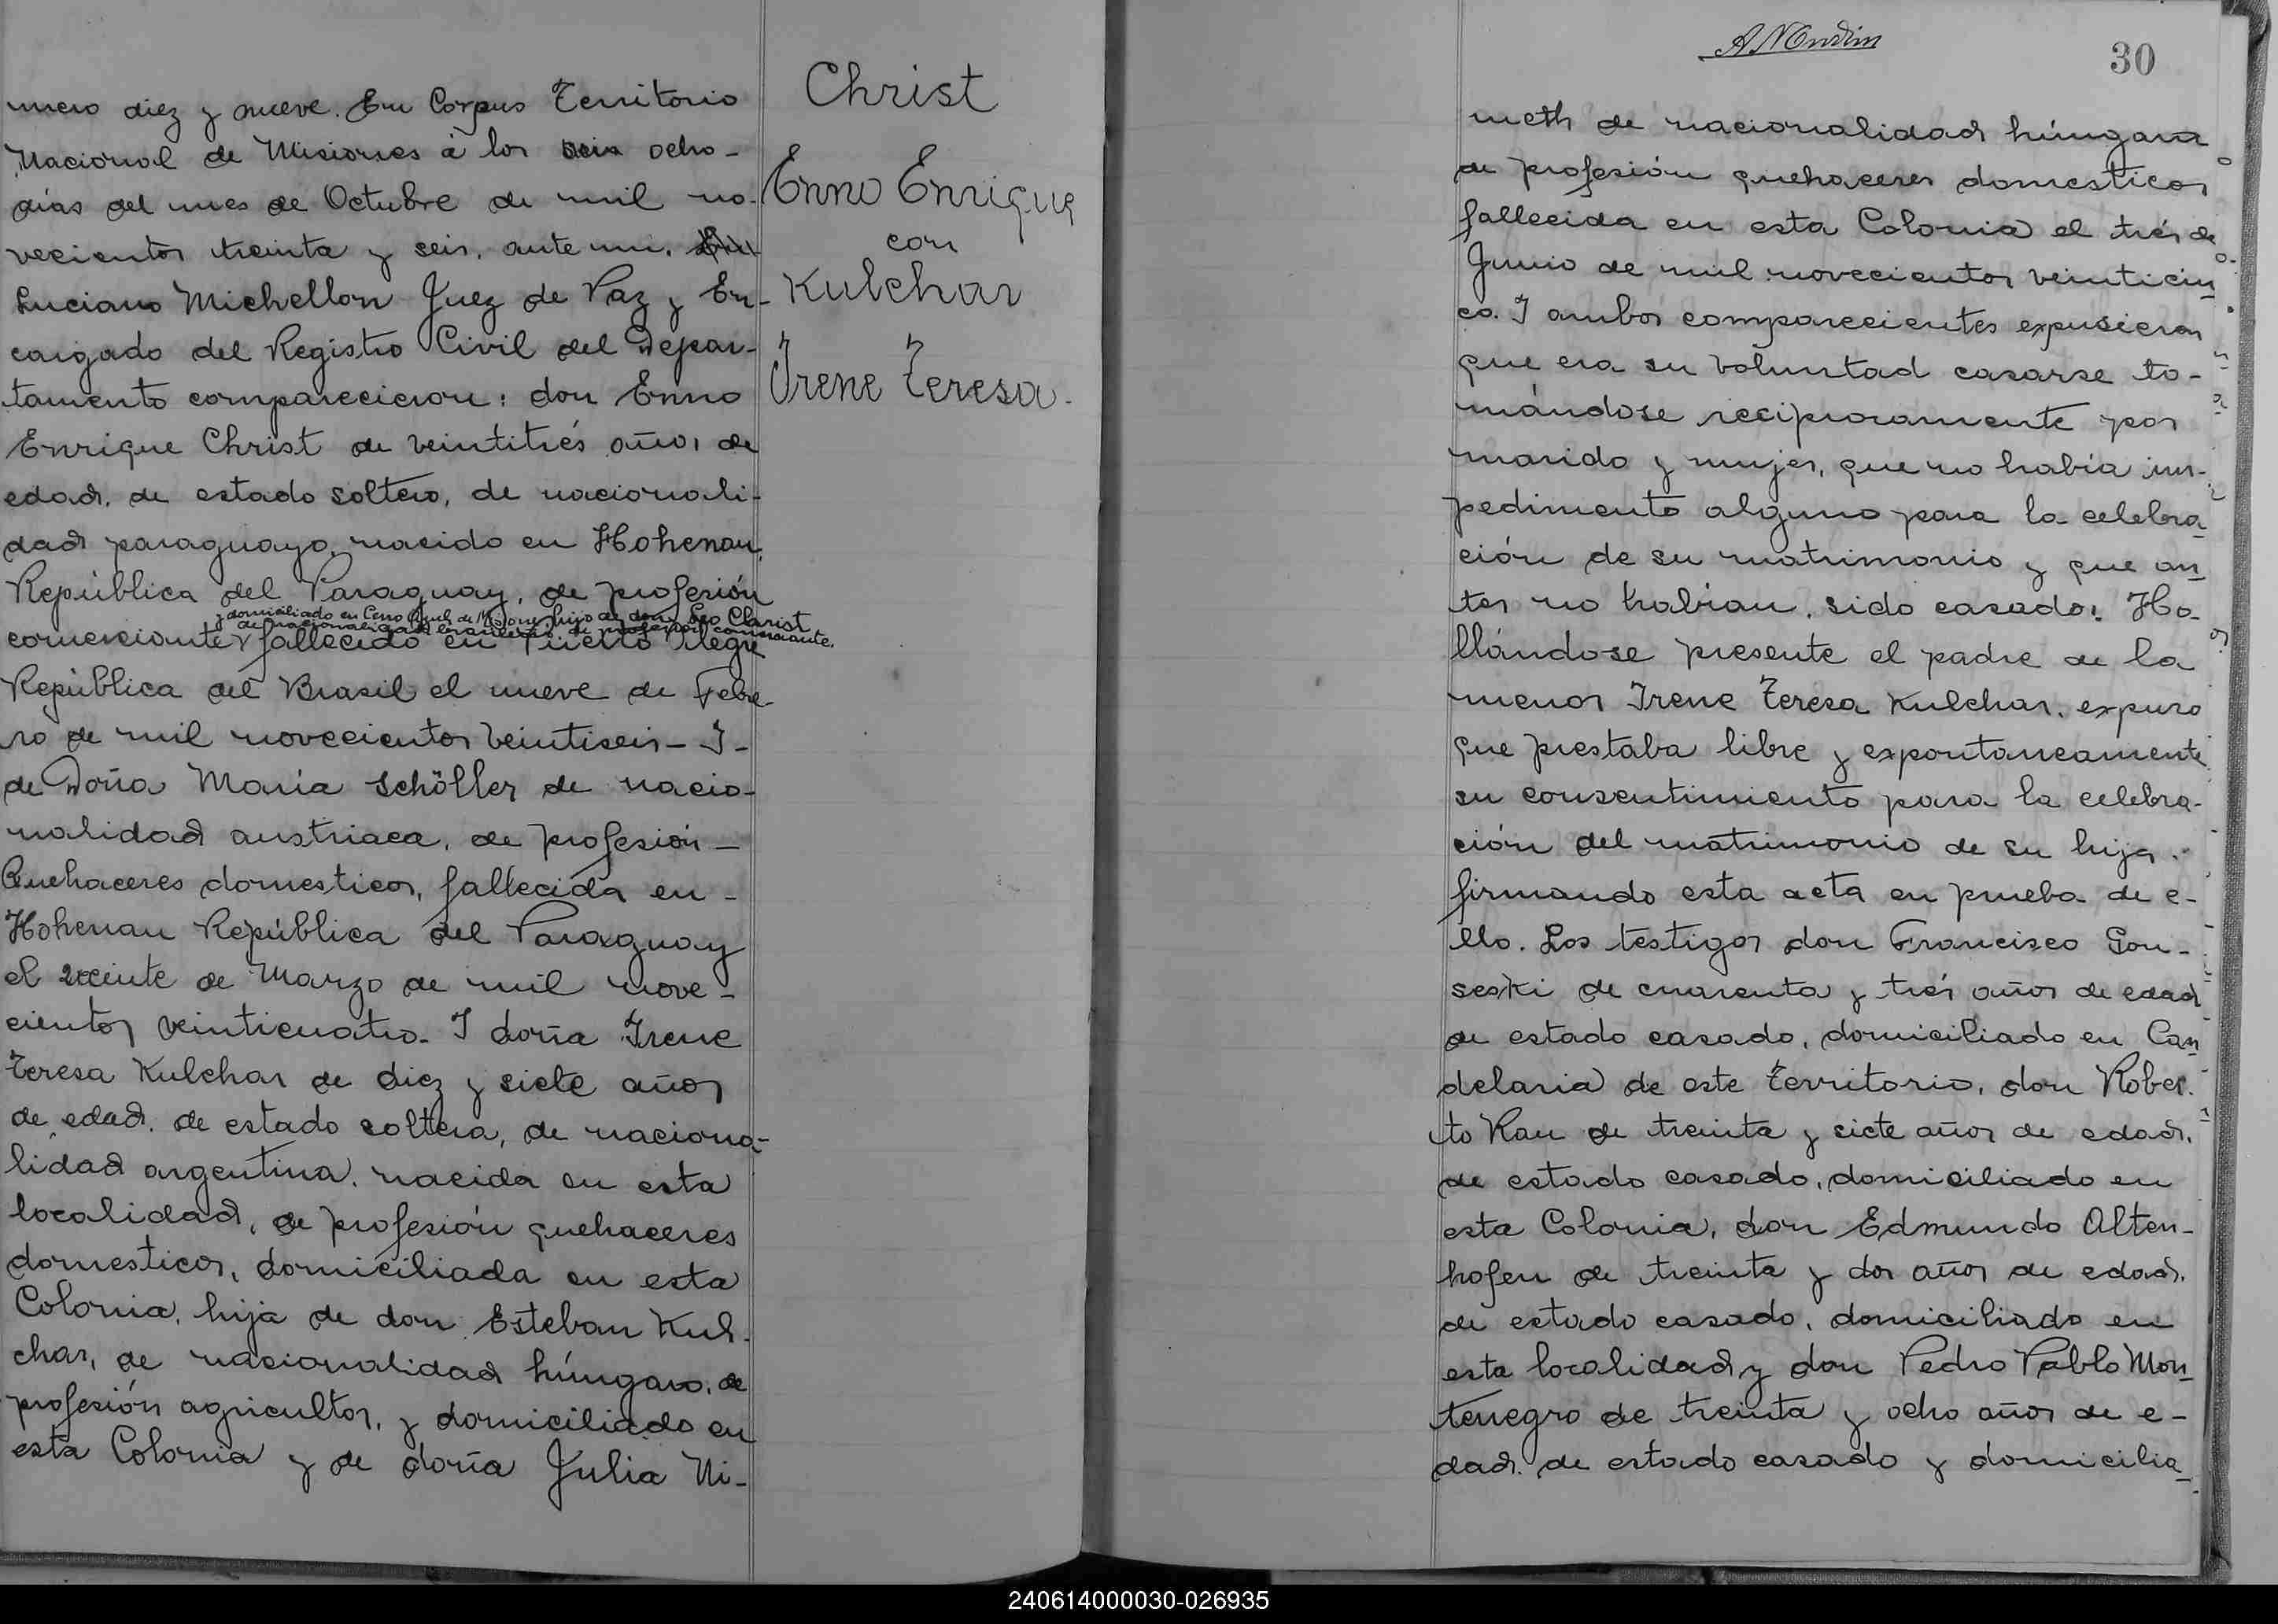 mero diez y nueve. En Corpus Territorio
Nacional de Misiones á los seis ocho-
días del mes de Octubre de mil no-
vecientos treinta y seis, ante mi.
Luciano Michellon Juez de Paz y En-
cargado del Registro Civil del Depar-
tamento comparecieron: don Enno
Enrique Christ de veintitrés años de
edad, de estado soltero, de nacionali-
dad paraguayo, nacido en Hohenau,
República del Paraguay, de profesión
y domiciliado en Cerro Corá de Misiones hijo de don Leo Christ
de nacionalidad brasilera, de profesión comerciante.
comerciante y fallecido en Puerto Alegre
República del Brasil el nueve de Febre-
ro de mil novecientos veintiseis - I -
de Doña Maria Schöller de nacio-
nalidad austriaca, de profesión -
Quehaceres domesticos, fallecida en -
Hohenau República del Paraguay
el veinte de Marzo de mil nove-
cientos veinticuatro. I doña Irene
Teresa Kulchar de diez y siete años
de edad, de estado soltera, de naciona-
lidad argentina, nacida en esta
localidad, de profesión quehaceres
domesticos, domiciliada en esta
Colonia, hija de don Esteban Kul-
char, de nacionalidad húngaro, de
profesión agricultor, y domiciliado en
esta Colonia y de doña Julia Ni-
Christ
Enno Enrique
con
Kulchar
Irene Teresa.
30
meth de nacionalidad húngara
de profesión quehaceres domesticos
fallecida en esta Colonia el trés de
Junio de mil novecientos veinticin
co. I ambos comparecientes expusieron
que era su voluntad casarse to-
mándose reciprocamente por
marido y mujer, que no había im-
pedimento alguno para la celebra
ción de su matrimonio y que an
tes no habían sido casados. Ha-
llándose presente el padre de la
menor Irene Teresa Kulchar, expuso
que prestaba libre y expontaneamente
su consentimiento para la celebra-
ción del matrimonio de su hija.
firmando esta acta en prueba de e-
llo. Los testigos don Francisco Gon-
seski de cuarenta y trés años de edad
de estado casado, domiciliado en Can
delaria de este Territorio, don Rober-
to Rau de treinta y siete años de edad,
de estado casado, domiciliado en
esta Colonia, don Edmundo Alten-
hofen de treinta y dos años de edad,
de estado casado, domiciliado en
esta localidad y don Pedro Pablo Mon
tenegro de treinta y ocho años de e-
dad, de estado casado y domicilia
240614000030-026935